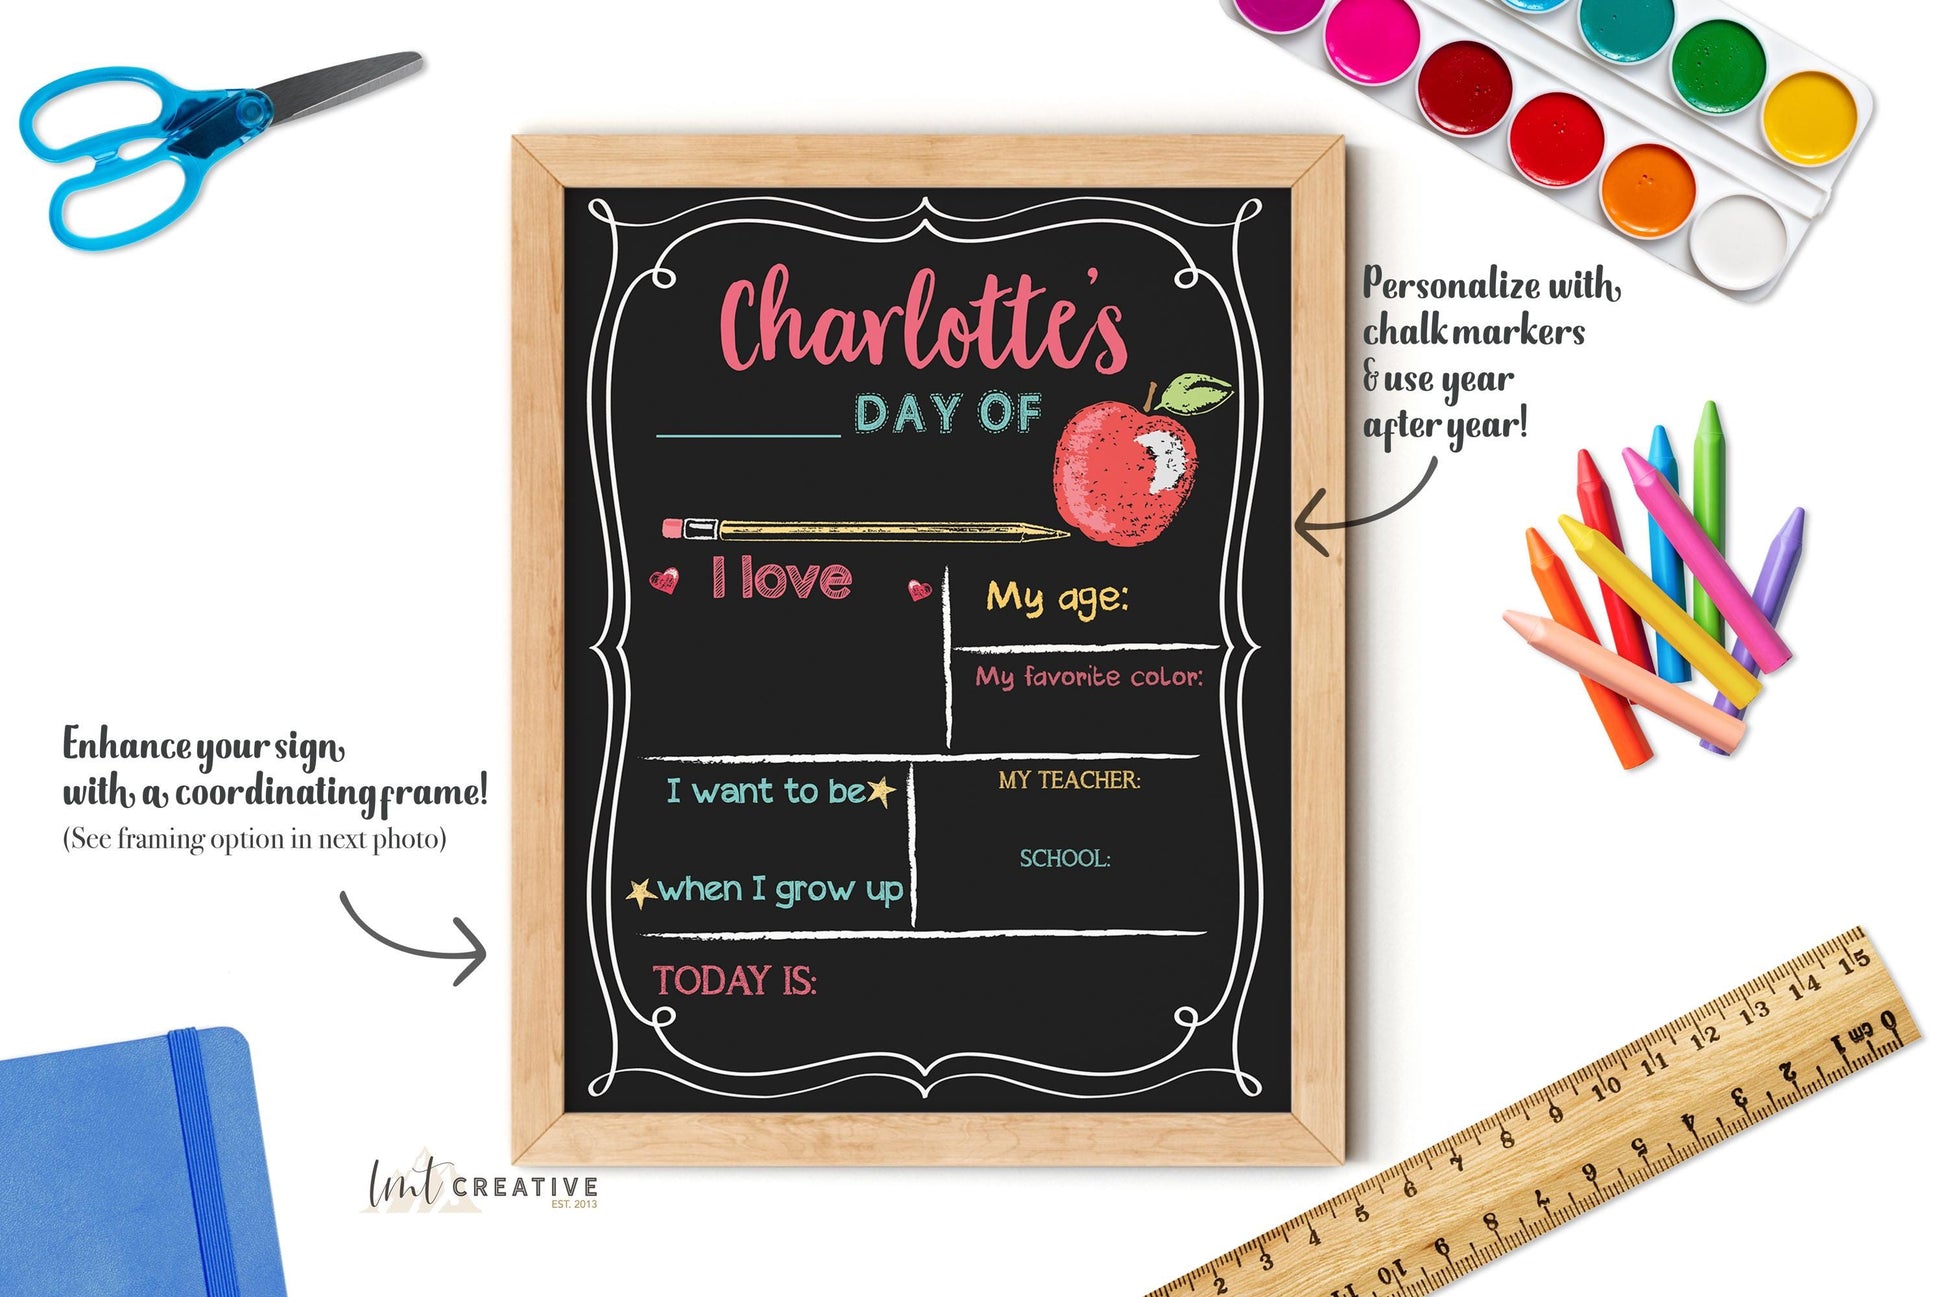 Charlotte's
DAY OF
I love
My age:
My favorite color:
I want to be
when I grow up
MY TEACHER:
SCHOOL:
TODAY IS:
Personalize with
chalk markers
& use year
after year!
Enhance your sign
with a coordinating frame!
(See framing option in next photo)
lmt CREATIVE
EST. 2013
15 14 13 12 11 10 9 8 7 6 5 4 3 2
0 cm 1 2 3 4 5 6 7 8 9 10 11